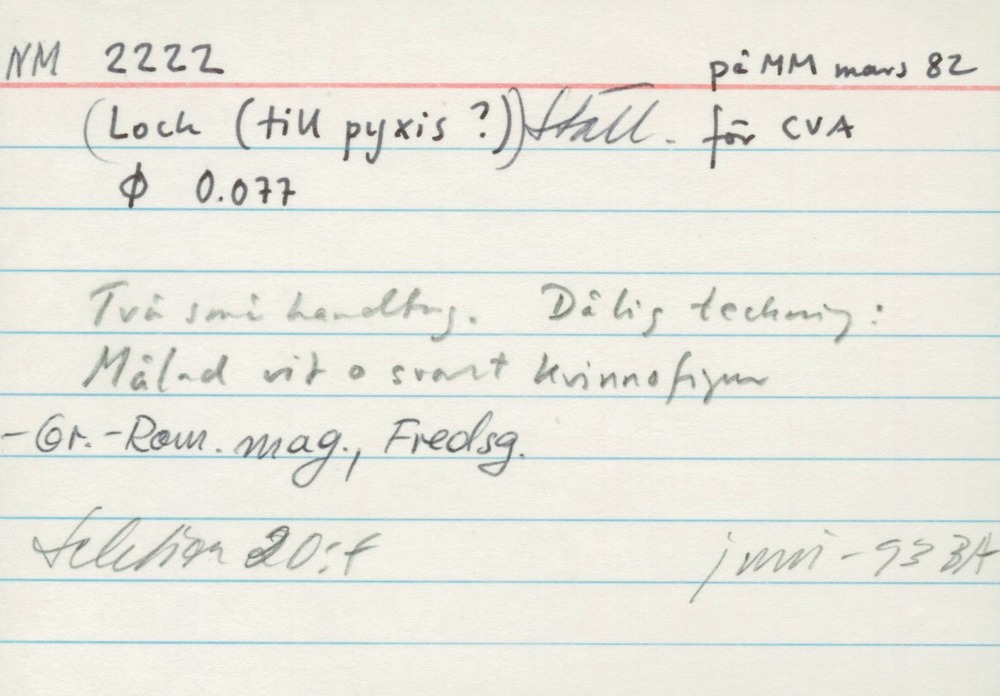 NM 2222 på MM mars 82
(Lock (till pyxis ?)) Ställ. för CVA
Φ 0.077
Två små handtag. Dålig teckning:
Målad vit o svart kvinnofigur
-Gr.-Rom. mag., Fredsg.
Sektion 20:f juni -93 BA